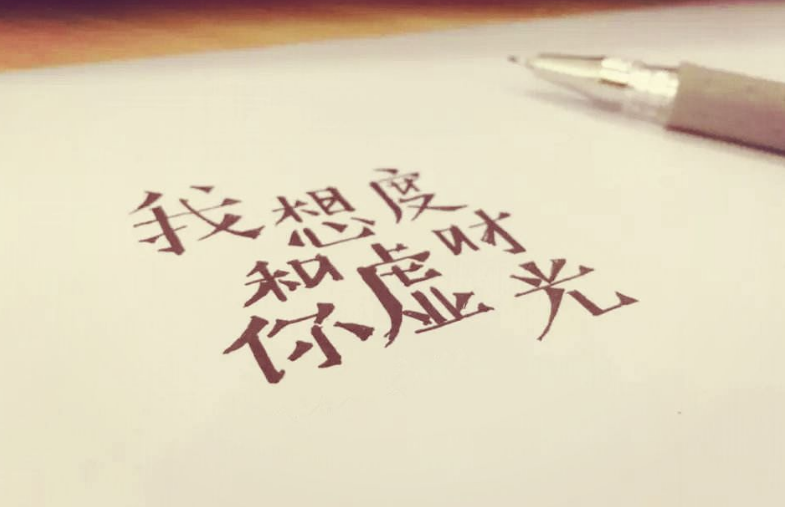 我想和你虚度时光